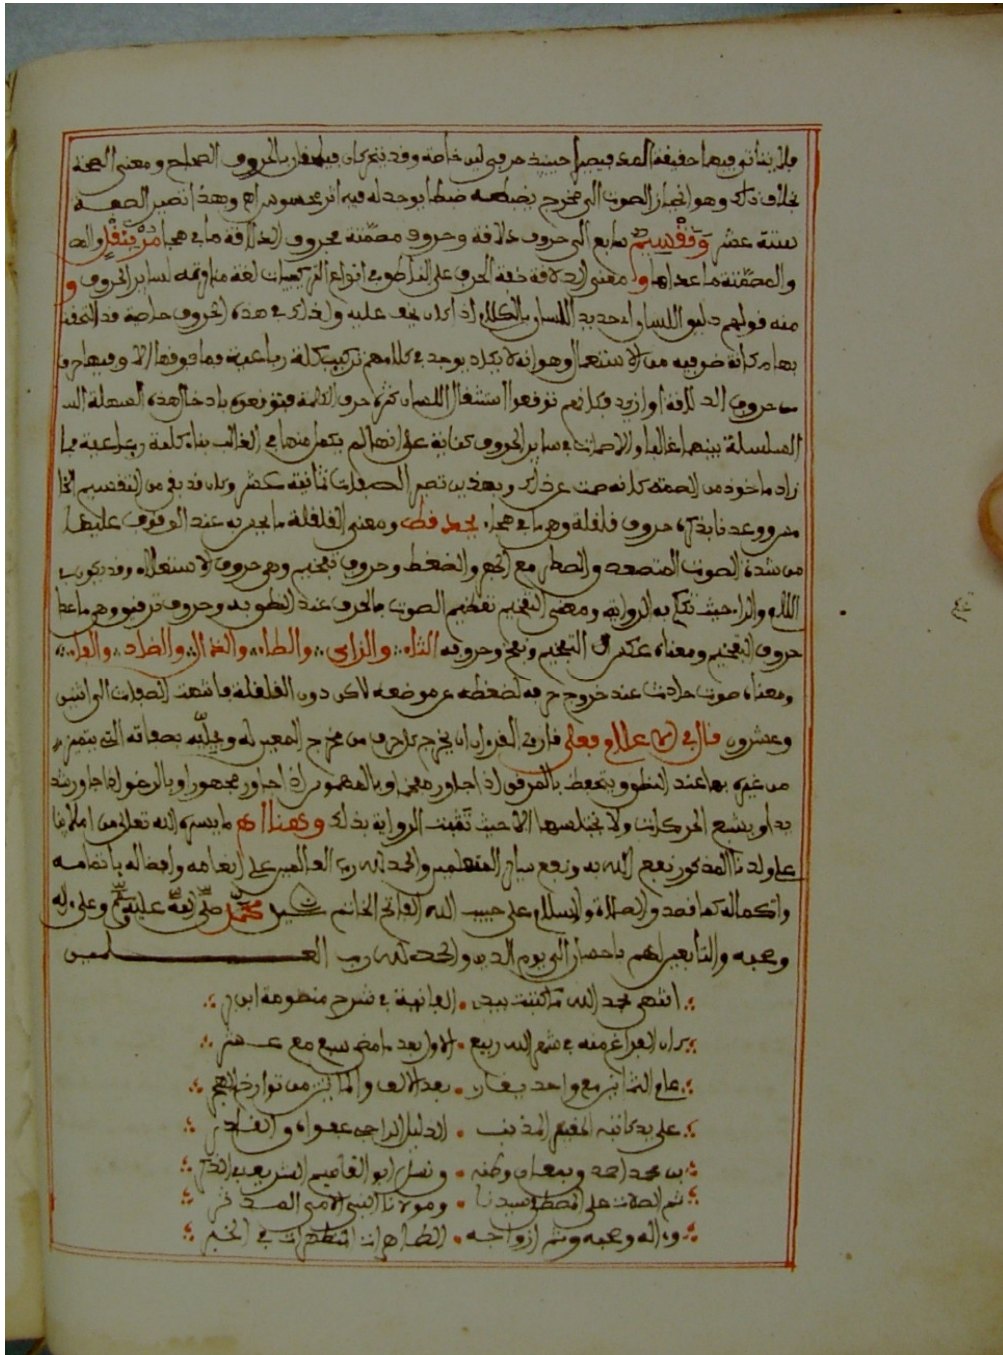 فلا يتأتى فيها حقيقة المد فيصيرا حينئذ حرفي لين خاصة وقد يتحركان فيلحقان بالحروف الصحاح ومعنى الصحة
بخلاف ذلك وهو انحياز الصوت الى مخرج يضبطه ضبطا يوجد له فيه اثر محسوس وبهذا تصير الصفة
ستة عشر وتنقسم بتابع الى حروف ذلاقة وحروف مصمتة فحروف الذلاقة ما في هجا مر بنفل والمص
والمصمتة ما عداها ومعنى الذلاقة خفة الحرف على الناطق في انواع التركيبات لغة لسائر الحروف و
منه قولهم ذليق اللسان اي حديد اللسان بالكلام اذ كان يخف عليه ولذلك في هذه الحروف خاصة قد
بها من الاستعمال وهو انه لا يكاد يوجد في كلامهم تركيب كلمة رباعية فما فوقها الا وفيها حرف
من حروف الذلاقة او ازيد فكانهم توقعوا استثقال اللسان كثرة حرف الكلمة بادخال هذه السهلة الس
السلسلة بينهما غالبا والاصمات في ساير الحروف كناية على انها لم يكمل منها في الغالب بناء كلمة رباعية فما
زاد ماخوذ من الصمت كانه صمت عن ذلك وبهذين تصير الصفات ثمانية عشر وكان قد بقي من التقسيم الخا
مس ووعدنا بذكره حروف قلقلة وهو ما في هجاء بجد قط ومعنى القلقلة ما يحس به عند الوقوف عليها
من شدة الصوت المتصعد والصدر مع الجهر والضغط وحروف تفخيم وهي حروف الاستعلاء وقد يكون في
اللام والراء حيث تحكم به الرواية ومعنى التفخيم تعظيم الصوت بالحرف عند النطق به وحروف ترقيق وهي ما عدا
حروف التفخيم ومعناه عكس التفخيم ونفخ وحروفه الثاء والزاي والظاء والذال والضاد والفاء
ومعناه صوت حادث عند خروج حرفه لضغطه عن موضعه لاكن دون القلقلة فانتهت الصفات الى اثنين
وعشرون قال في قارئ القرءان ان يخرج كل حرف من مخرج المعين له ويحليه بصفاته التي يتميز بها
من غيره بها عند النطق ويتحفظ بالمرقق اذا جاور مفخما وبالمهموس اذا جاور مجهورا وبالرخو اذا جاور شد
يدا ويشبع الحركات ولا يختلسها الا حيث تثبت الرواية بذلك وهنا انتهى ما يسره الله تعالى من املائنا
على ولدنا المذكور نفع الله به ونفع سائر المتعلمين والحمد لله رب العالمين على انعامه وافضاله باتمامه
واكماله كما قصد والصلاة والسلام على حبيب الله الفاتح الخاتم محمد صلى الله عليه وسلم وعلى ءاله
وصحبه والتابعين لهم باحسان الى يوم الدين والحمد لله رب العـــلمين
انتهى بحمد الله ما كتبت بيدي الفانية في شرح منظومة ابن بر
كان الفراغ منه في شهر الله ربيع الاول بعد ما مضى سبع مع عشر
عام الثمانين مع واحد يقارن بعد الالف والمائتين من توارخ الهجر
على يد كاتبه الفقير المذنب الذليل الراجي عفو
بن محمد احمد ونسل ابو القاسم الشريف
ثم الصلات على المصطفى سيدنا ومولانا النبي الامي
وءاله وصحبه وثم ازواجه الطاهرات المطهرات في الخبر